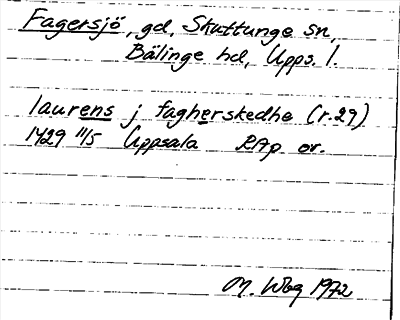 Fagersjö, gd, Skuttunge sn,
Bälinge hd, Upps. l.
laurens j fagherskedhe (r. 29)
1429 11/5 Uppsala RAp or.
M. Wbg 1972